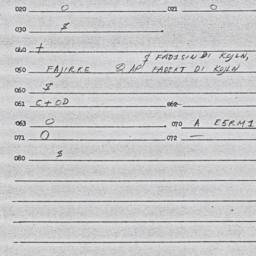 020 O 021 O
030 $
040 +
$ FADISIN DI KOJLN,
050 FAJIRKE & AP FADEKT DI KOJLN
060 $
061 C+OD 062
063 O 070 A E5RM1
071 O 072 —
080 $